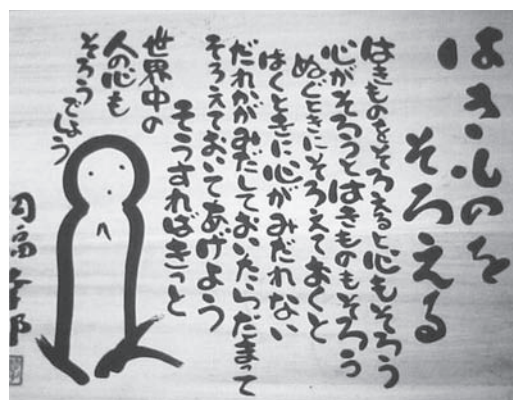 はきものを
そろえる
はきものをそろえると心もそろう
心がそろうとはきものもそろう
ぬぐときにそろえておくと
はくときに心がみだれない
だれかがみだしておいたらだまって
そろえておいてあげよう
そうすればきっと
世界中の
人の心も
そろうでしょう